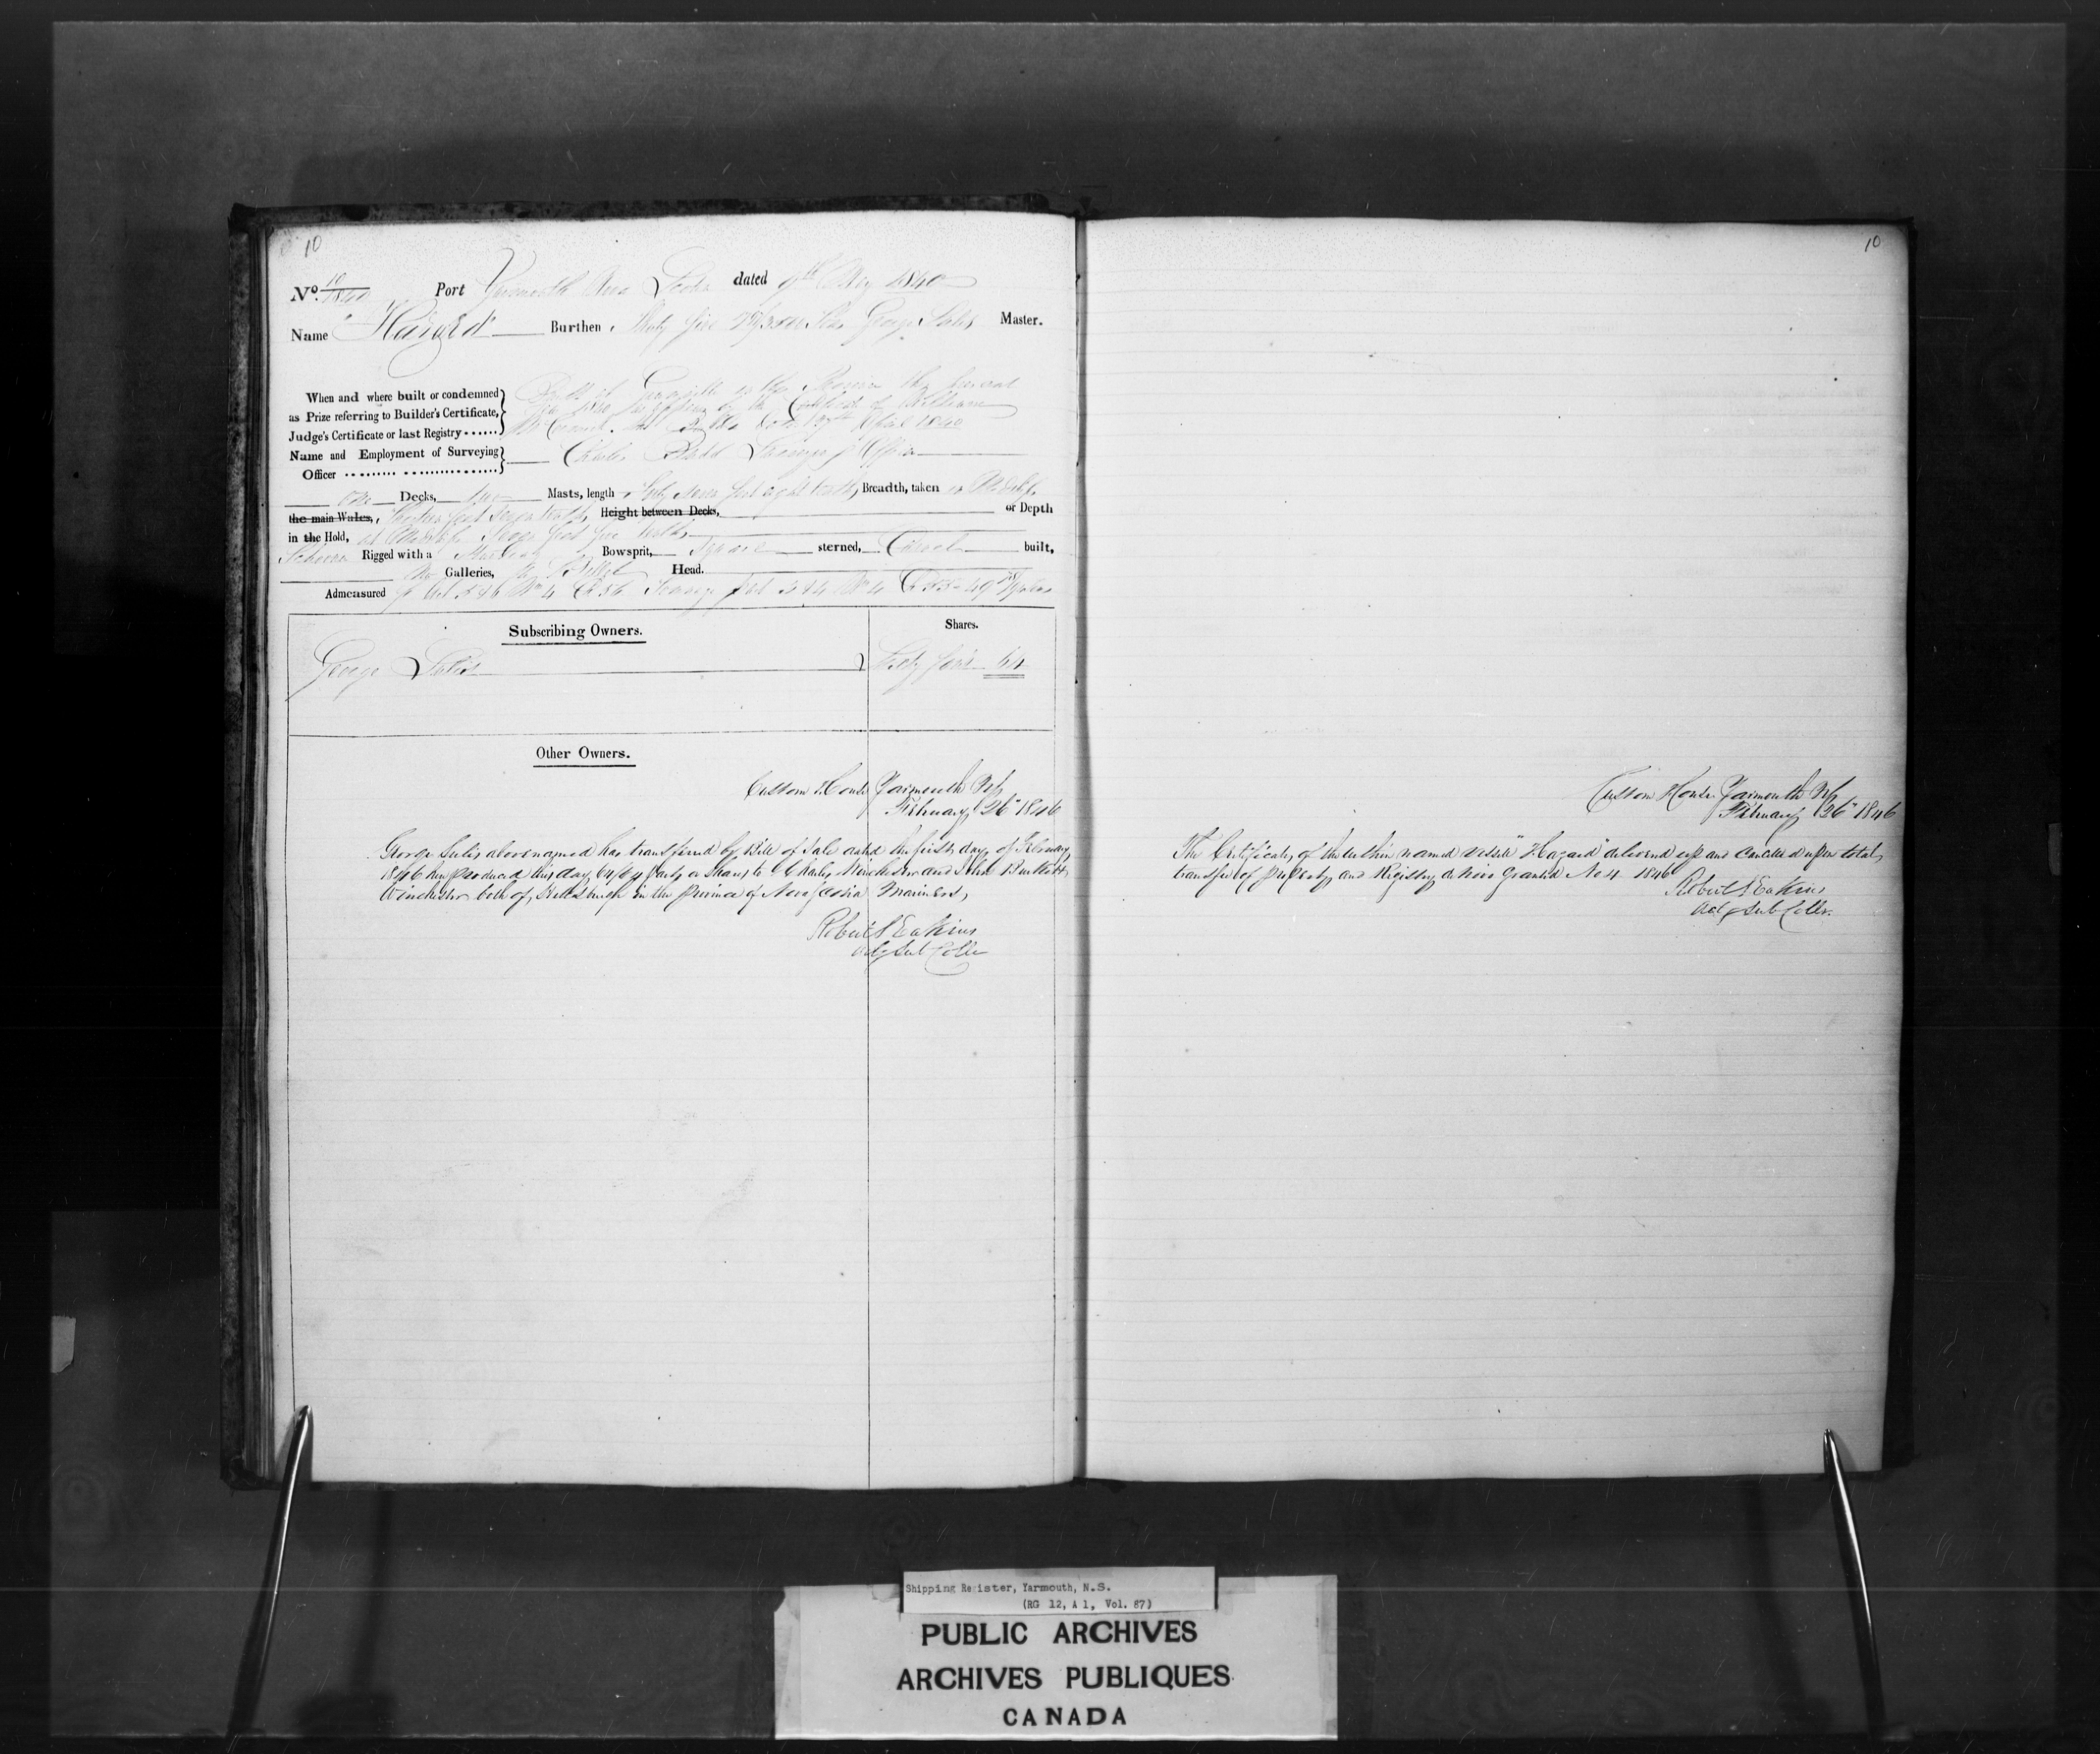 10
No. 10/1840 Port Yarmouth Nova Scotia dated 9th May 1840
Name "Hazard" Burthen Thirty five Tons George Sulis Master.
When and where built or condemned
as Prize referring to Builder's Certificate,
Judge's Certificate or last Registry
Built at in the Province this present
year 1840 as appears by the Certificate of William
the Builder dated April 1840
Name and Employment of Surveying
Officer
Charles Budd Surveying Officer
One Decks, two Masts, length feet eight tenths, Breadth, taken
the main Wales, Thirteen feet seven tenths, Height between Decks, or Depth
in the Hold, at Midships feet five tenths
Schooner Rigged with a Standing Bowsprit, Square sterned, Carvel built,
No Galleries, Billet Head.
Admeasured
Subscribing Owners. Shares.
George Sulis Sixty four 64
Other Owners.
Custom House Yarmouth NS
February 26" 1846
George Sulis above named has transferred by Bill of Sale dated the first day of February
1846 now produced this day 64/64 parts or Shares to Charles Winchester and John Burkett
Winchester both of Hillsburgh in the province of Nova Scotia Mariners,
Robert S Eakins
Actg Sub Collr
10
Custom House Yarmouth NS
February 26" 1846
The Certificate of the within named vessel "Hazard" delivered up and Cancelled upon total
transfer of property and Registry de Novo Granted No 4 1846
Robert S Eakins
Actg Sub Collr.
Shipping Register, Yarmouth, N.S.
(RG 12, A 1, Vol. 87)
PUBLIC ARCHIVES
ARCHIVES PUBLIQUES
CANADA